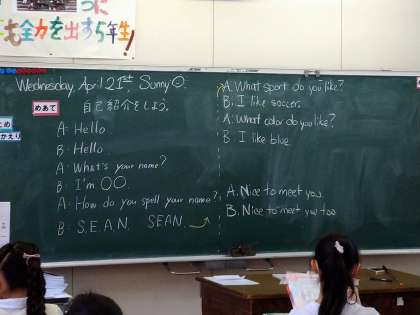 うに
も全力を出す5年生!
Wednesday, April 21st, Sunny☺.
めあて
自己紹介をしよう。
A: Hello.
B: Hello.
A: What's your name?
B: I'm ○○.
A: How do you spell your name?
B: S.E.A.N. SEAN.
A: What sport do you like?
B: I like soccer.
A: What color do you like?
B: I like blue.
A. Nice to meet you.
B. Nice to meet you too.